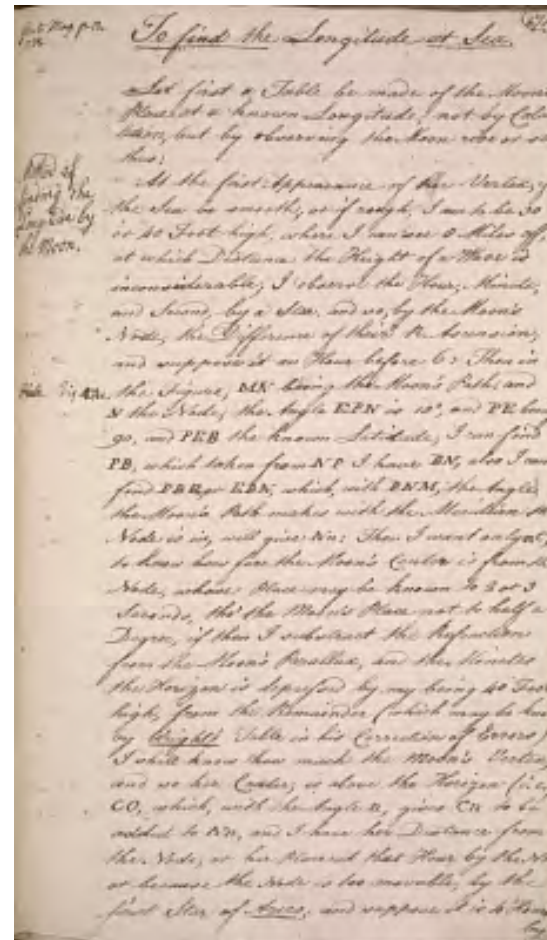 To find the Longitude at Sea.
Let first a Table be made of the Moons
Place at a known Longitude, not by Calcu
lation, but by observing the Moon rise or set
thus:
At the first Appearance of her Vertex, if
the Sea be smooth, or if rough, I am to be 30
or 40 Foot high, where I can see 8 Miles off,
at which Distance the Height of a Wave is
inconsiderable; I observe the Hour, Minute,
and Second, by a Star, and so, by the Moon's
Node, the Difference of their R. Ascension;
and suppose it an Hour before 6: Then in
the Figure, MN being the Moon's Path, and
N the Node, the Angle EPN is 15°, and PE being
90, and PEB the known Latitude, I can find
PB, which taken from NP I have BN, also I can
find PBE or EBN, which, with BNM, the Angle
the Moon's Path makes with the Meridian the
Node is in, will give Nn: Then I want only
to know how far the Moon's Center is from the
Node, whose Place may be known to 2 or 3
Seconds, tho' the Moon's Place not to half a
Degree, if then I substract the Refraction
from the Moon's Parallax, and the Minutes
the Horizon is depressed by my being 40 Foot
high, from the Remainder (which may be
by Wright's Table in his Correction of Errors)
I shall know how much the Moon's Vertex,
and so her Center, is above the Horizon (i.e.
CO, which, with the Angle n, gives Cn to be
added to Nn, and I have her Distance from
the Node, or her Place at that Hour by the
or because the Node is too movable, by the
first Star of Aries, and suppose it is
Method of
finding the
Longitude by
the Moon.
Vide Fig